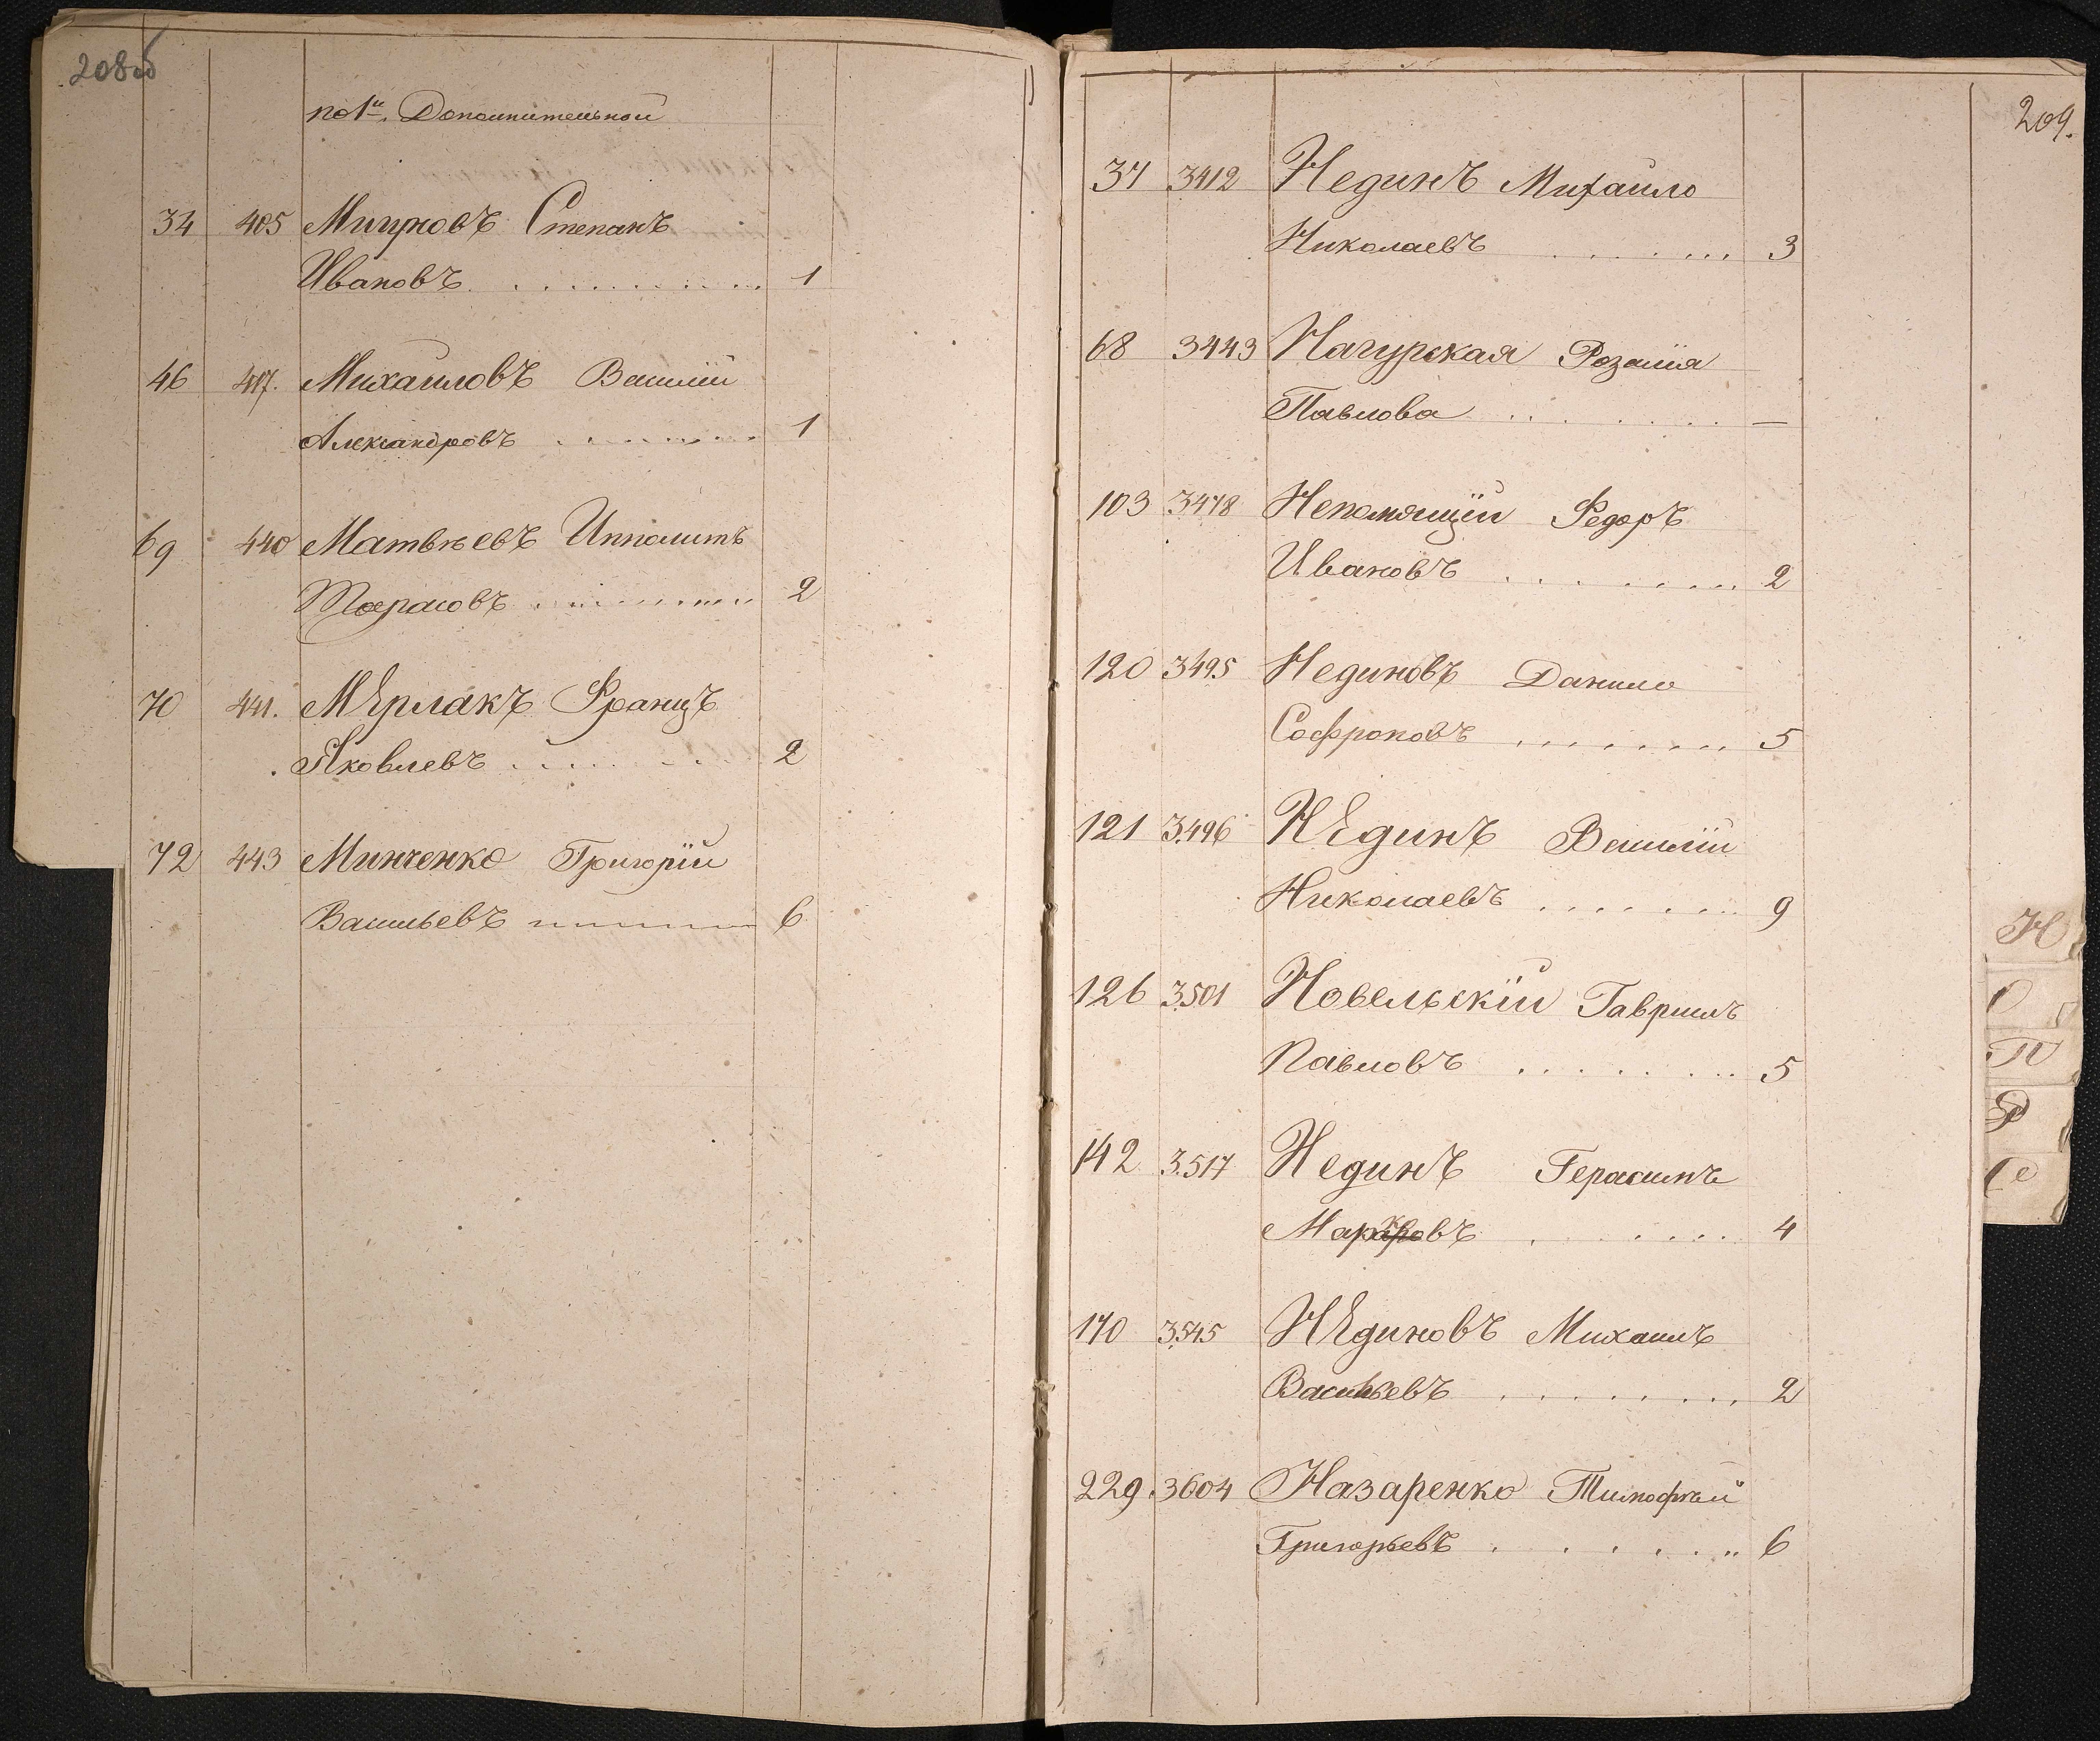 208об
по 1й Дополнительной
34 405 Мигуновъ Степанъ
Ивановъ 1
46 417. Михайловъ Василій
Александровъ 1
69 440 Матвѣевъ Ипполитъ
Тарасовъ 2
70 441. МЕрлакъ Францъ
Яковлевъ 2
72 443 Минченко Григорій
Васильевъ 6
209.
37 3412 Нединъ Михайло
Николаевъ 3
68 3443 Нагурская Розалія
Павлова —
103 3478 Непомящій Федоръ
Ивановъ 2
120 3495 Нединовъ Данило
Софроновъ 5
121 3496 НЕдинъ Василій
Николаевъ 9
126 3501 Новельскій Гавриилъ
Павловъ 5
142 3517 Нединъ Герасимъ
Марковъ 4
170 3545 НЕдиновъ Михаилъ
Васильевъ 2
229. 3604 Назаренко Тимофѣй
Григорьевъ 6
Н
О
П
Р
С